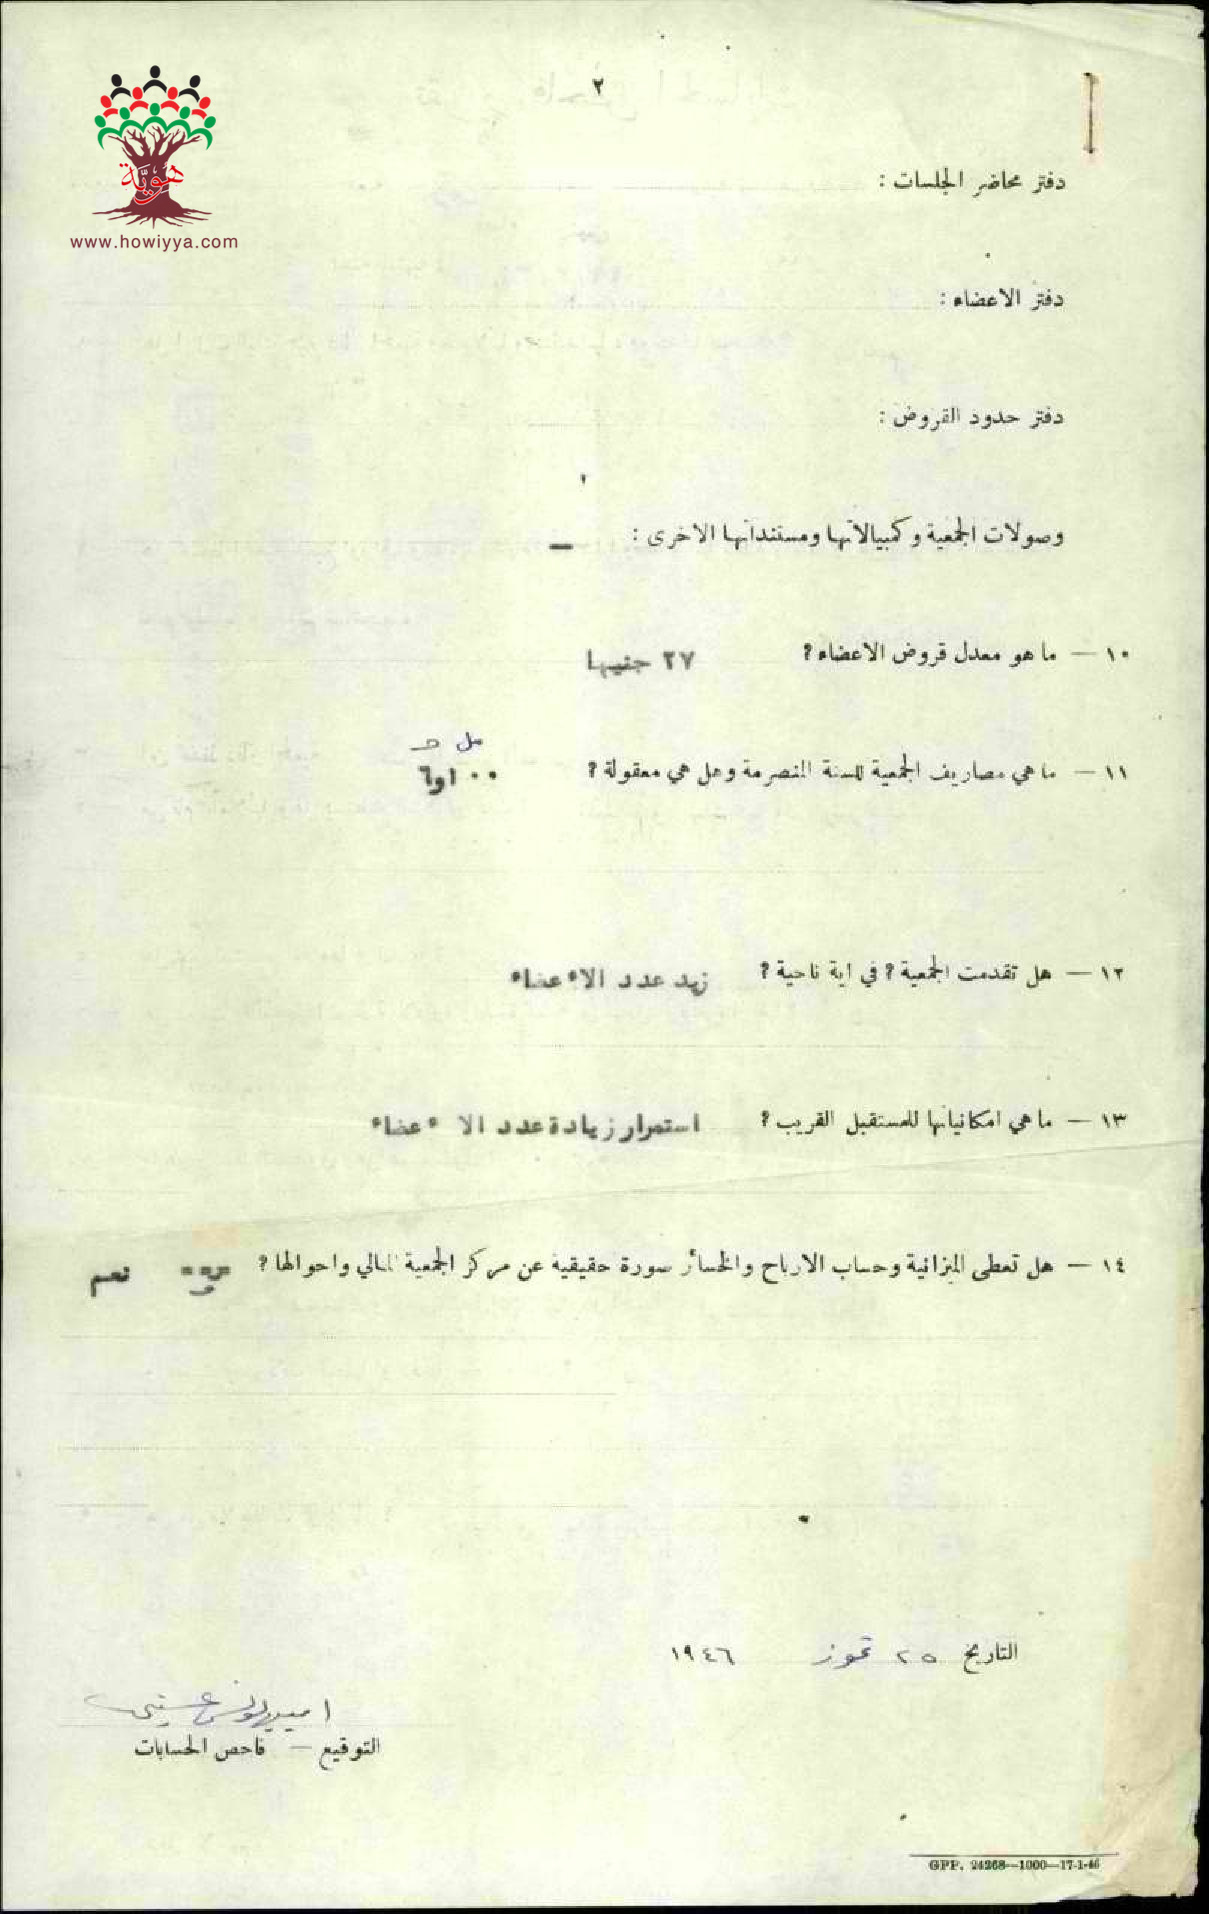 ٢
هويّة
www.howiyya.com
دفتر محاضر الجلسات :
دفتر الاعضاء :
دفتر حدود القروض :
وصولات الجمعية وكمبيالاتها ومستنداتها الاخرى : —
١٠ — ما هو معدل قروض الاعضاء؟ ٢٧ جنيها
مل ج
١١ — ما هي مصاريف الجمعية للسنة المنصرمة وهل هي معقولة؟ ١٠٠و٦
١٢ — هل تقدمت الجمعية؟ في اية ناحية؟ زيد عدد الاعضاء
١٣ — ما هي امكانياتها للمستقبل القريب؟ استمرار زيادة عدد الاعضاء
١٤ — هل تعطى الميزانية وحساب الارباح والخسائر صورة حقيقية عن مركز الجمعية المالي واحوالها؟ نعم
التاريخ ٢٥ تموز ١٩٤٦
التوقيع — فاحص الحسابات
GPP. 24268—1000—17-1-46